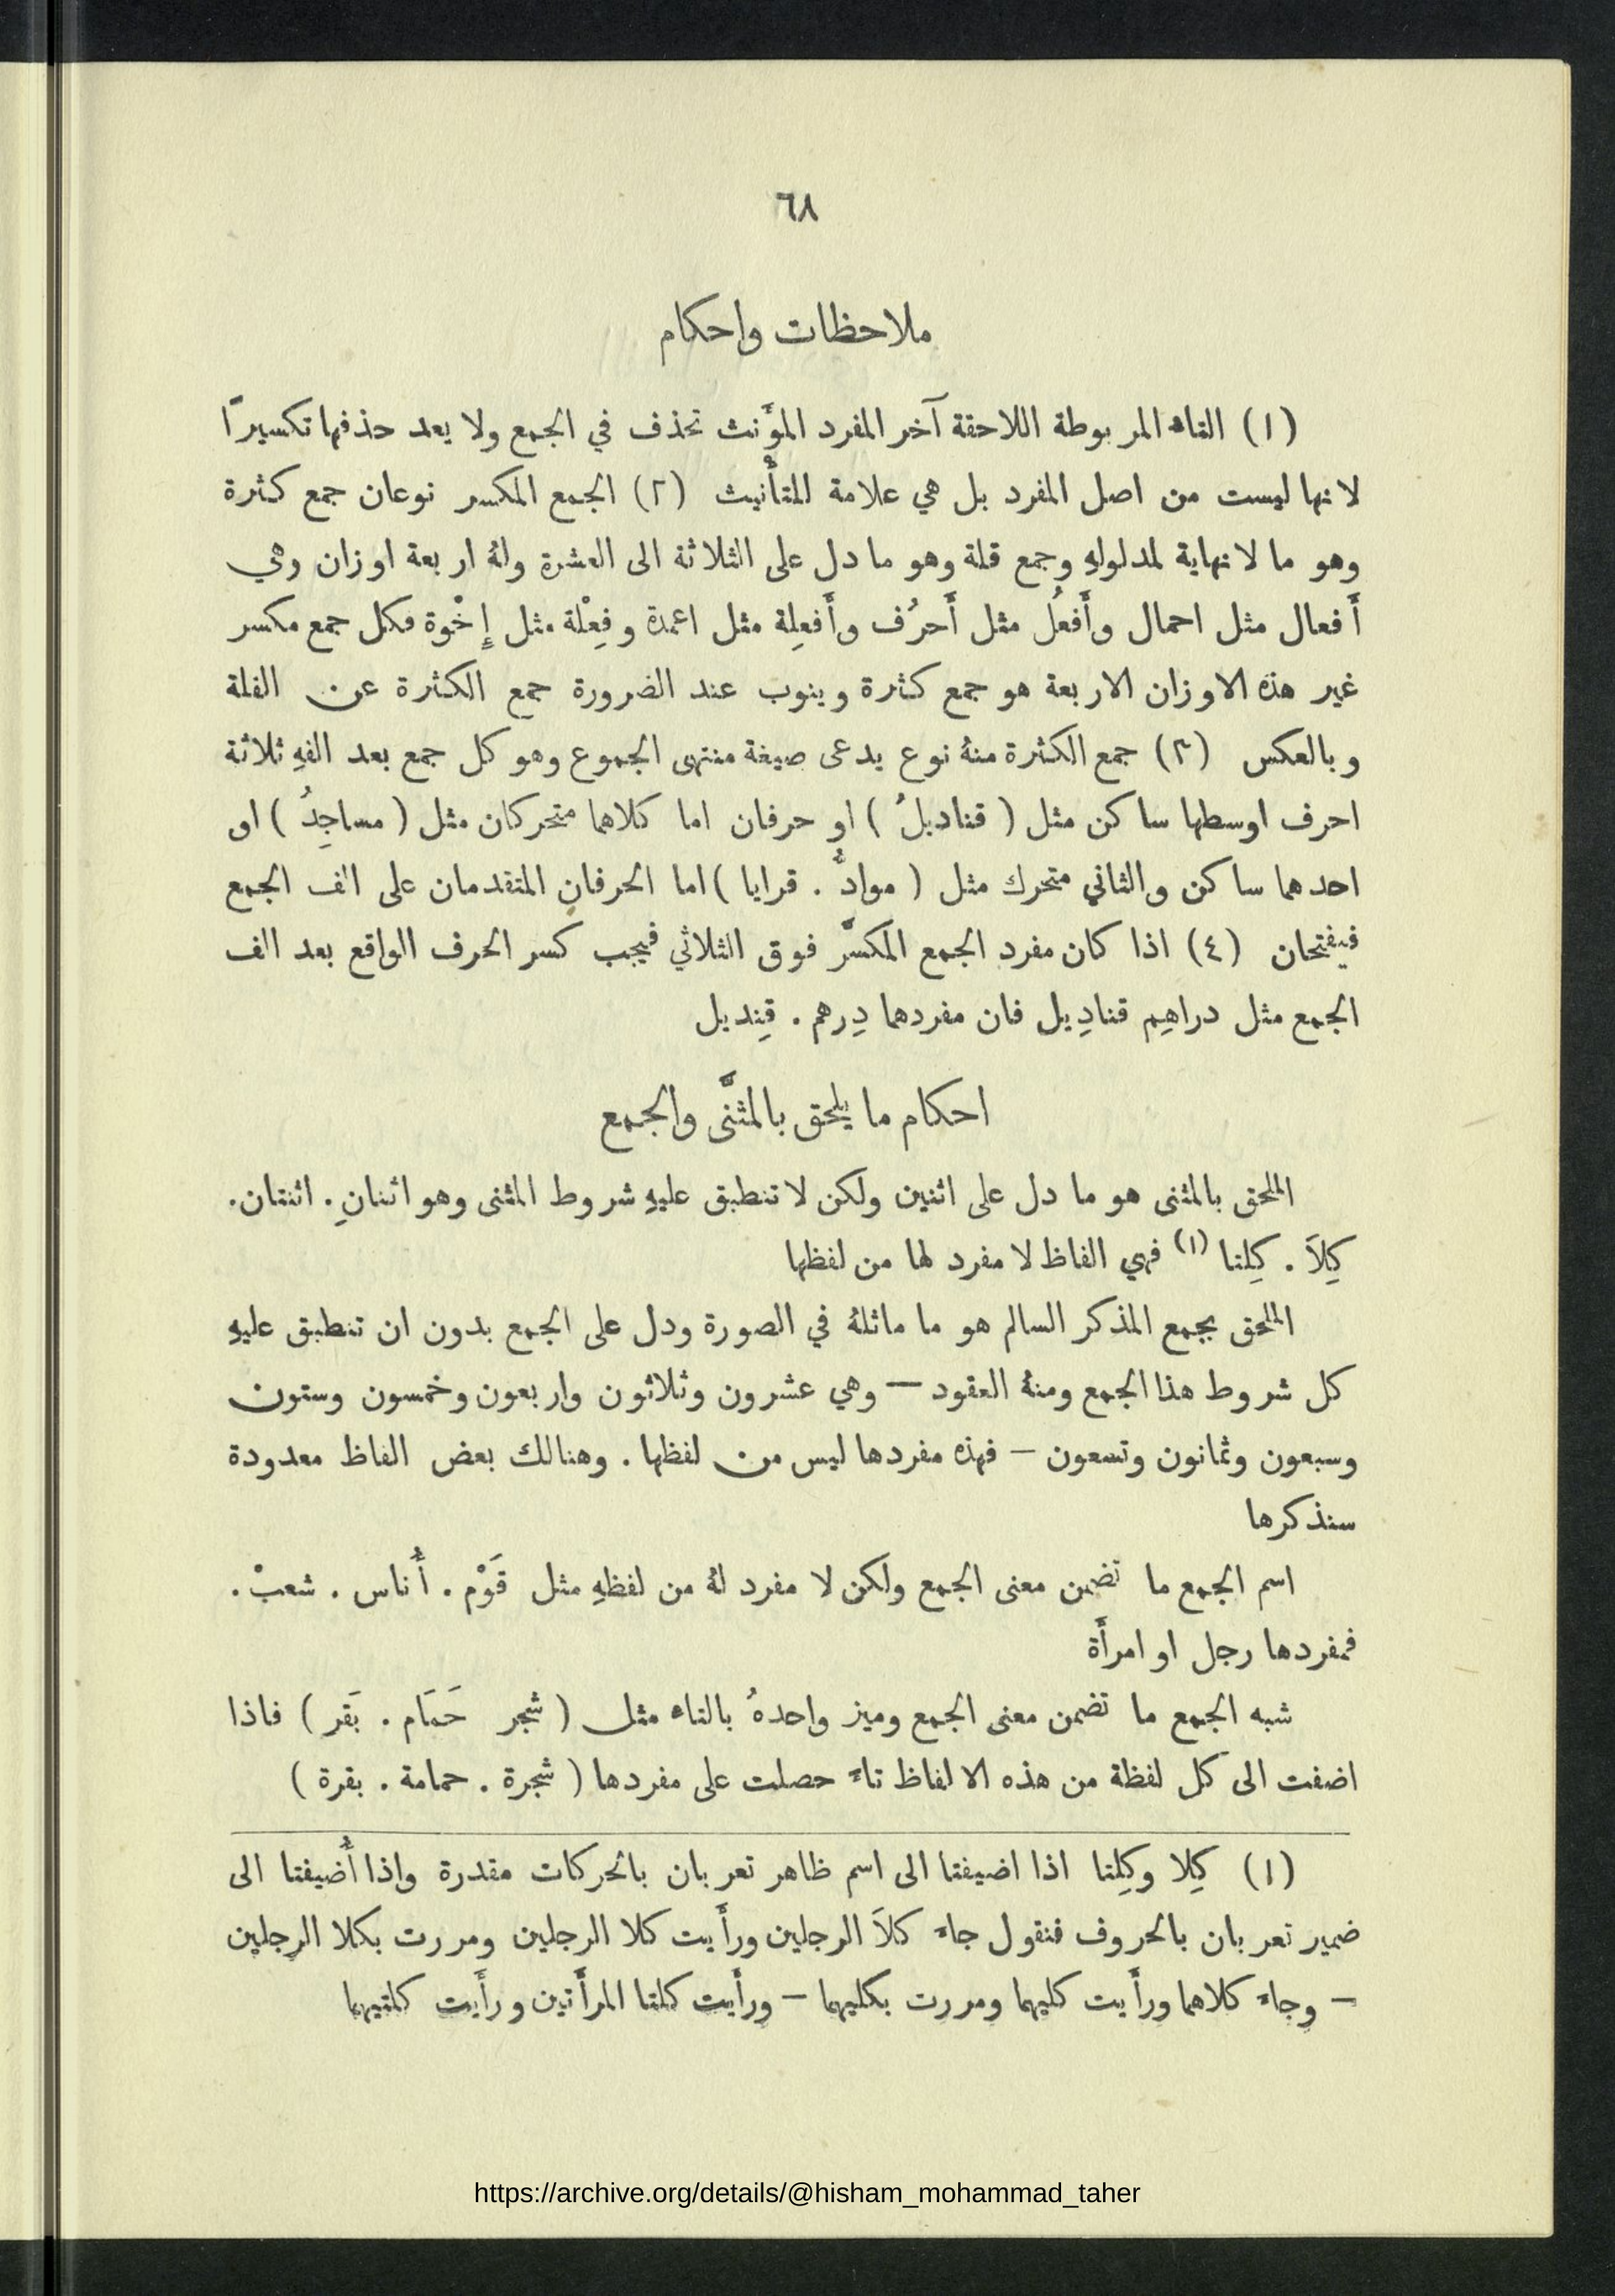 ٦٨
ملاحظات واحكام
(١) التاء المربوطة اللاحقة آخر المفرد المؤَنث تحذف في الجمع ولا يعد حذفها تكسيرًا
لانها ليست من اصل المفرد بل هي علامة للتأْنيث (٢) الجمع المكسر نوعان جمع كثرة
وهو ما لا نهاية لمدلولهِ وجمع قلة وهو ما دل على الثلاثة الى العشرة ولهُ اربعة اوزان وهي
أَفعال مثل احمال وأَفعُل مثل أَحرُف وأَفعِلة مثل اعمدة وفِعْلة مثل إِخْوة فكل جمع مكسر
غير هذه الاوزان الاربعة هو جمع كثرة وينوب عند الضرورة جمع الكثرة عن القلة
وبالعكس (٣) جمع الكثرة منهُ نوع يدعى صيغة منتهى الجموع وهو كل جمع بعد الفهِ ثلاثة
احرف اوسطها ساكن مثل ( قناديلُ ) او حرفان اما كلاهما متحركان مثل ( مساجِدُ ) او
احدهما ساكن والثاني متحرك مثل ( موادُّ . قرايا ) اما الحرفانِ المتقدمان على الف الجمع
فيفتحان (٤) اذا كان مفرد الجمع المكسَّر فوق الثلاثي فيجب كسر الحرف الواقع بعد الف
الجمع مثل دراهِم قنادِيل فان مفردهما دِرهم . قِنديل
احكام ما يلحق بالمثنَّى والجمع
الملحق بالمثنى هو ما دل على اثنين ولكن لا تنطبق عليهِ شروط المثنى وهو اثنانِ . اثنتان .
كِلاَ . كِلتا (١) فهي الفاظ لا مفرد لها من لفظها
الملحق بجمع المذكر السالم هو ما ماثلهُ في الصورة ودل على الجمع بدون ان تنطبق عليهِ
كل شروط هذا الجمع ومنهُ العقود — وهي عشرون وثلاثون واربعون وخمسون وستون
وسبعون وثمانون وتسعون — فهذه مفردها ليس من لفظها . وهنالك بعض الفاظ معدودة
سنذكرها
اسم الجمع ما تضمن معنى الجمع ولكن لا مفرد لهُ من لفظهِ مثل قَوْم . أُناس . شعبْ .
فمفردها رجل او امرأَة
شبه الجمع ما تضمن معنى الجمع وميز واحدهُ بالتاء مثل ( شجر حَمَام . بَقر ) فاذا
اضفت الى كل لفظة من هذه الالفاظ تاءً حصلت على مفردها ( شجرة . حمامة . بقرة )
(١) كِلا وكِلتا اذا اضيفتا الى اسم ظاهر تعربان بالحركات مقدرة واذا أُضيفتا الى
ضمير تعربان بالحروف فنقول جاءَ كلاَ الرجلين ورأَيت كلا الرجلين ومررت بكلا الرجلين
— وجاءَ كلاهما ورأَيت كليهما ومررت بكليهما — ورأَيت كلتا المرأَتين ورأَيت كلتيهما
https://archive.org/details/@hisham_mohammad_taher